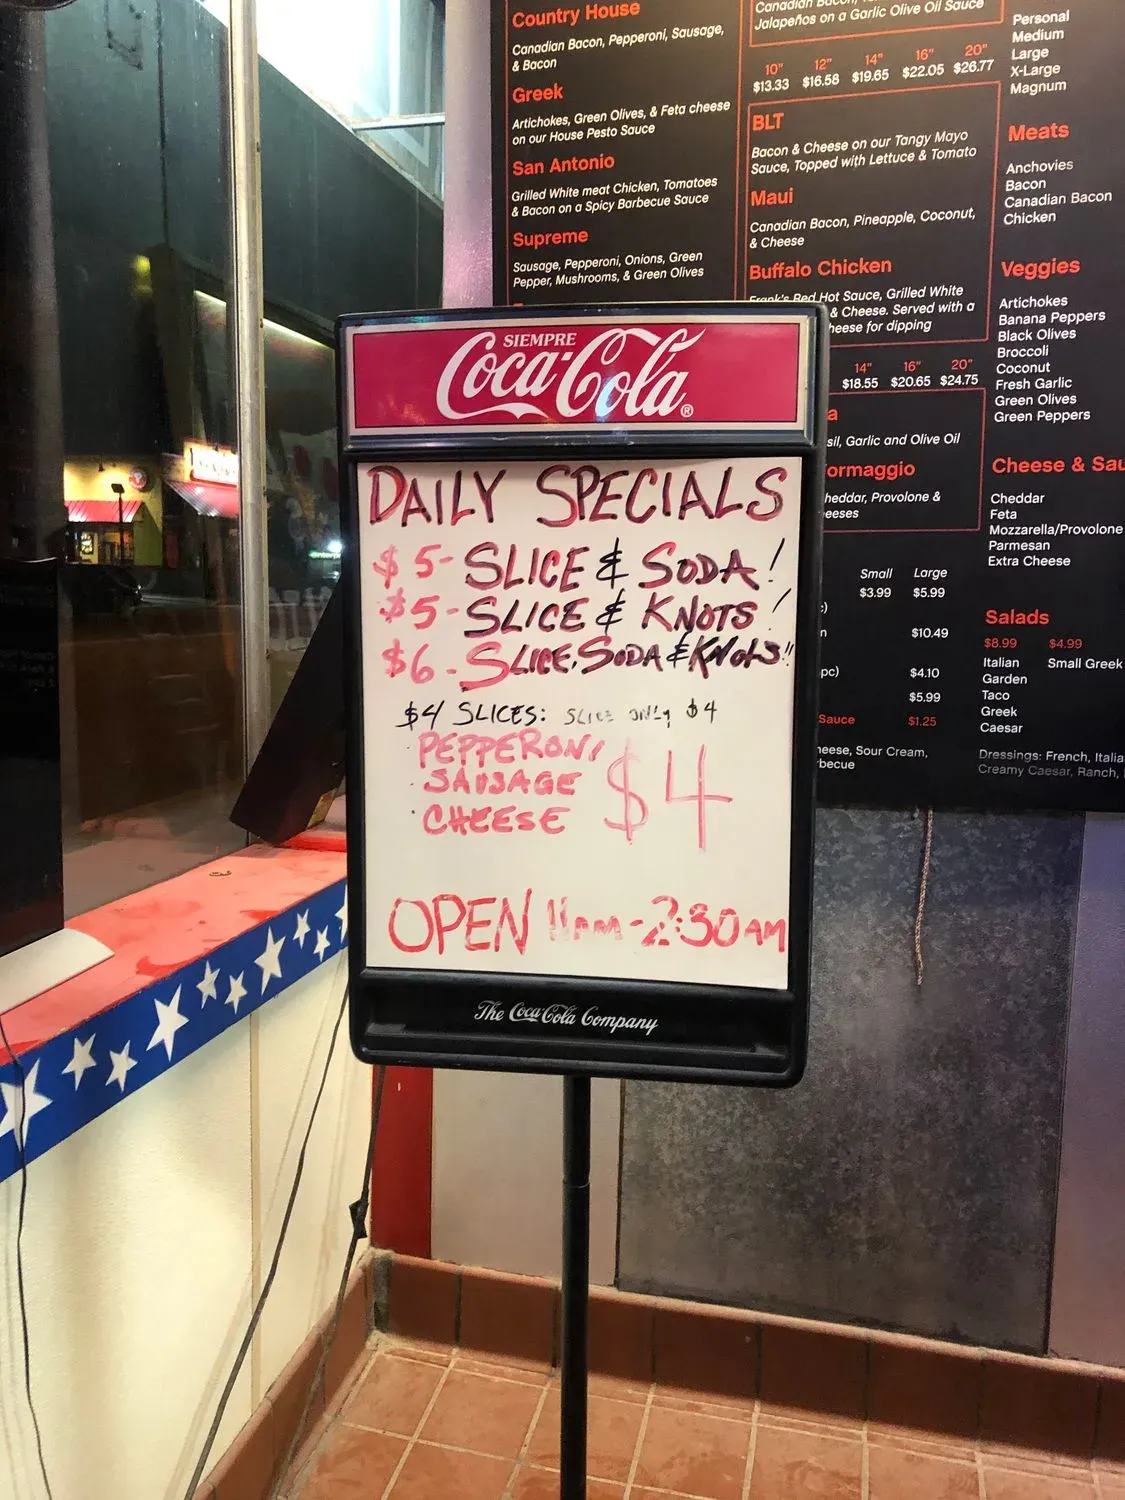 Country House
Canadian Bacon, Pepperoni, Sausage,
& Bacon
Greek
Artichokes, Green Olives, & Feta cheese
on our House Pesto Sauce
San Antonio
Grilled White meat Chicken, Tomatoes
& Bacon on a Spicy Barbecue Sauce
Supreme
Sausage, Pepperoni, Onions, Green
Pepper, Mushrooms, & Green Olives
Canadian Bacon,
Jalapeños on a Garlic Olive Oil Sauce
10" 12" 14" 16" 20"
$13.33 $16.58 $19.65 $22.05 $26.77
BLT
Bacon & Cheese on our Tangy Mayo
Sauce, Topped with Lettuce & Tomato
Maui
Canadian Bacon, Pineapple, Coconut,
& Cheese
Buffalo Chicken
Frank's Red Hot Sauce, Grilled White
& Cheese. Served with a
heese for dipping
14" 16" 20"
$18.55 $20.65 $24.75
a
sil, Garlic and Olive Oil
ormaggio
heddar, Provolone &
eeses
Small Large
$3.99 $5.99
$10.49
pc) $4.10
$5.99
Sauce $1.25
heese, Sour Cream,
becue
Personal
Medium
Large
X-Large
Magnum
Meats
Anchovies
Bacon
Canadian Bacon
Chicken
Veggies
Artichokes
Banana Peppers
Black Olives
Broccoli
Coconut
Fresh Garlic
Green Olives
Green Peppers
Cheese & Sau
Cheddar
Feta
Mozzarella/Provolone
Parmesan
Extra Cheese
Salads
$8.99 $4.99
Italian Small Greek
Garden
Taco
Greek
Caesar
Dressings: French, Italia
Creamy Caesar, Ranch,
SIEMPRE
Coca-Cola®
DAILY SPECIALS
$5- SLICE & SODA!
$5- SLICE & KNOTS!
$6- SLICE, SODA & KNOTS!!
$4 SLICES: SLICE ONLY $4
· PEPPERONI
· SAUSAGE $4
· CHEESE
OPEN 11AM-2:30AM
The Coca-Cola Company